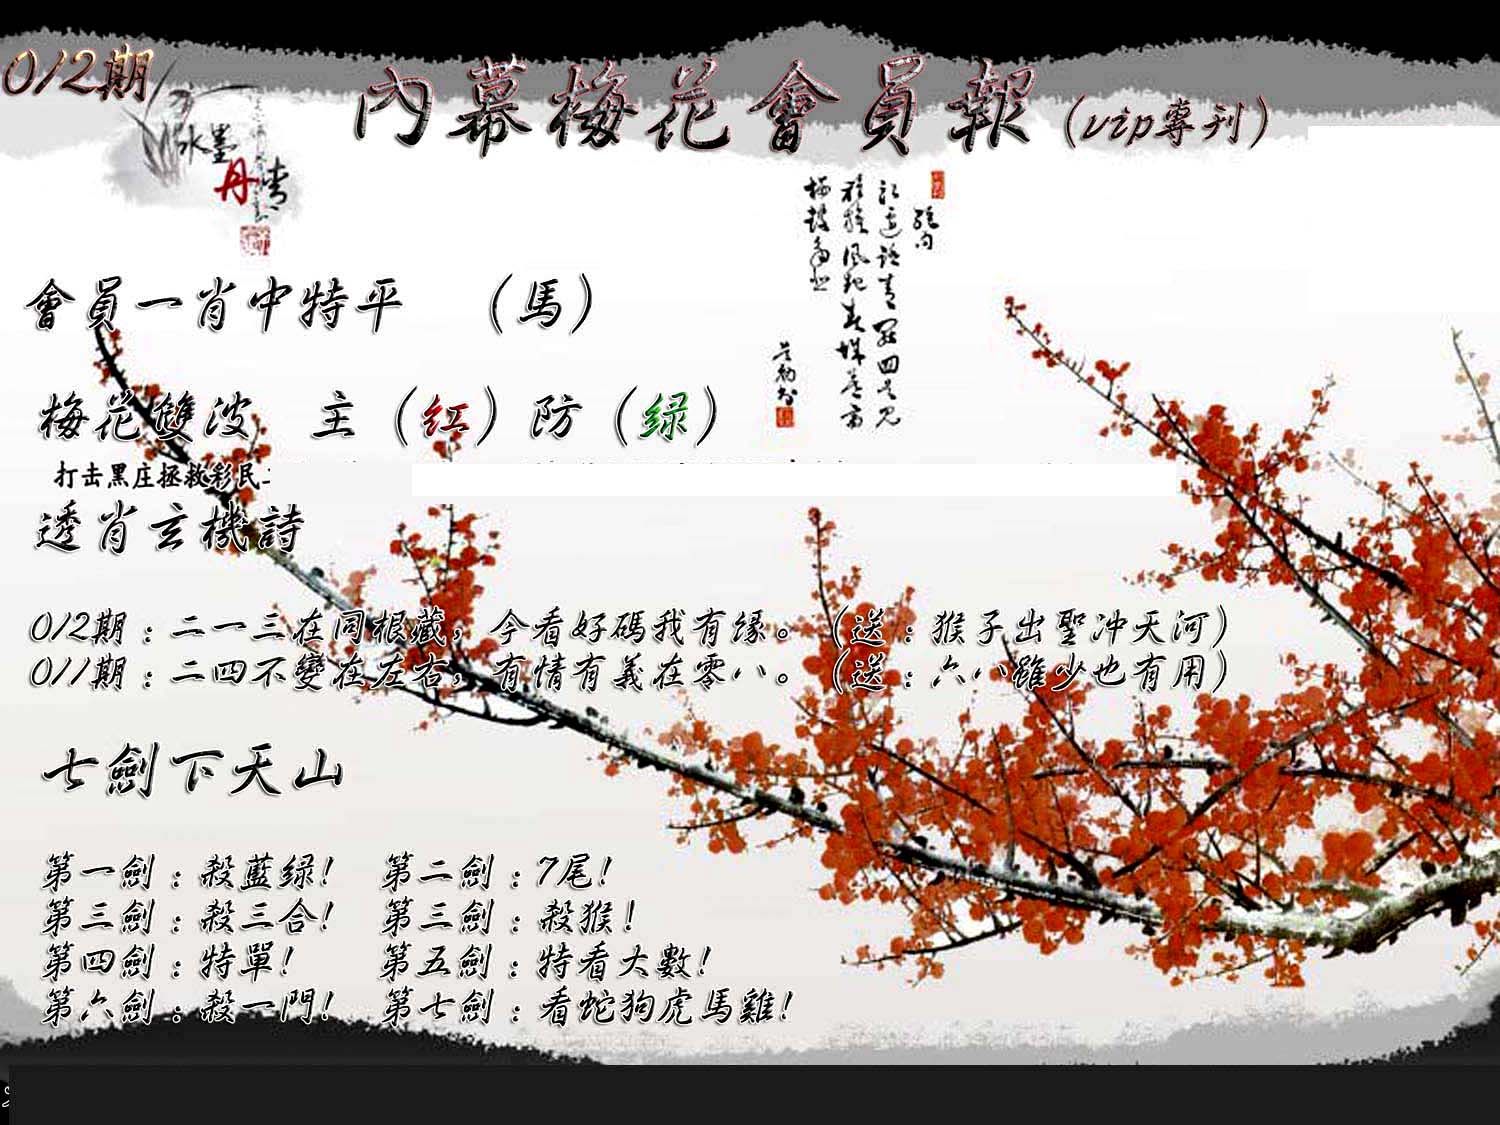 012期
內幕梅花會員報(vip專刊)
水墨
丹青
會員一肖中特平 (馬)
梅花雙波 主(红)防(绿)
打击黑庄拯救彩民
透肖玄機詩
012期:二一三在同根藏,今看好碼我有缘。(送:猴子出聖冲天河)
011期:二四不變在左右,有情有義在零八。(送:六八雖少也有用)
七劍下天山
第一劍:殺藍绿! 第二劍:7尾!
第三劍:殺三合! 第三劍:殺猴!
第四劍:特單! 第五劍:特看大數!
第六劍:殺一門! 第七劍:看蛇狗虎馬雞!